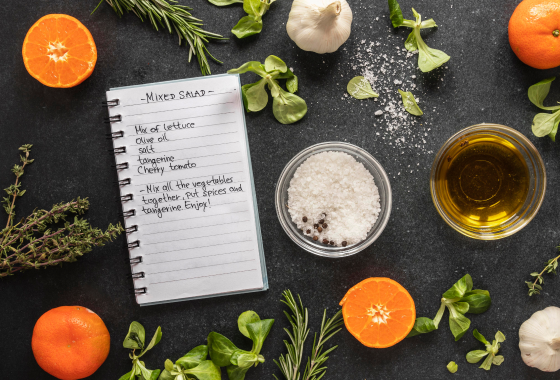 ~MIXED SALAD~
Mix of lettuce
olive oil
salt
tangerine
Cherry tomato
-Mix all the vegetables
together, put spices and
tangerine Enjoy!